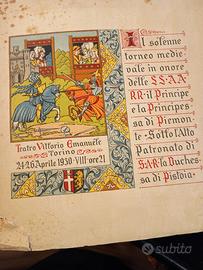 Il solenne
torneo medie-
vale in onore
delle SS·AA·
RR·il Principe
e la Principes-
sa di Piemon-
te·Sotto l'Alto
Patronato di
S·A·R·la Duches-
sa di Pistoia·
Teatro Vittorio Emanuele
Torino
24-26 Aprile 1930·VIII·ore 21
subito